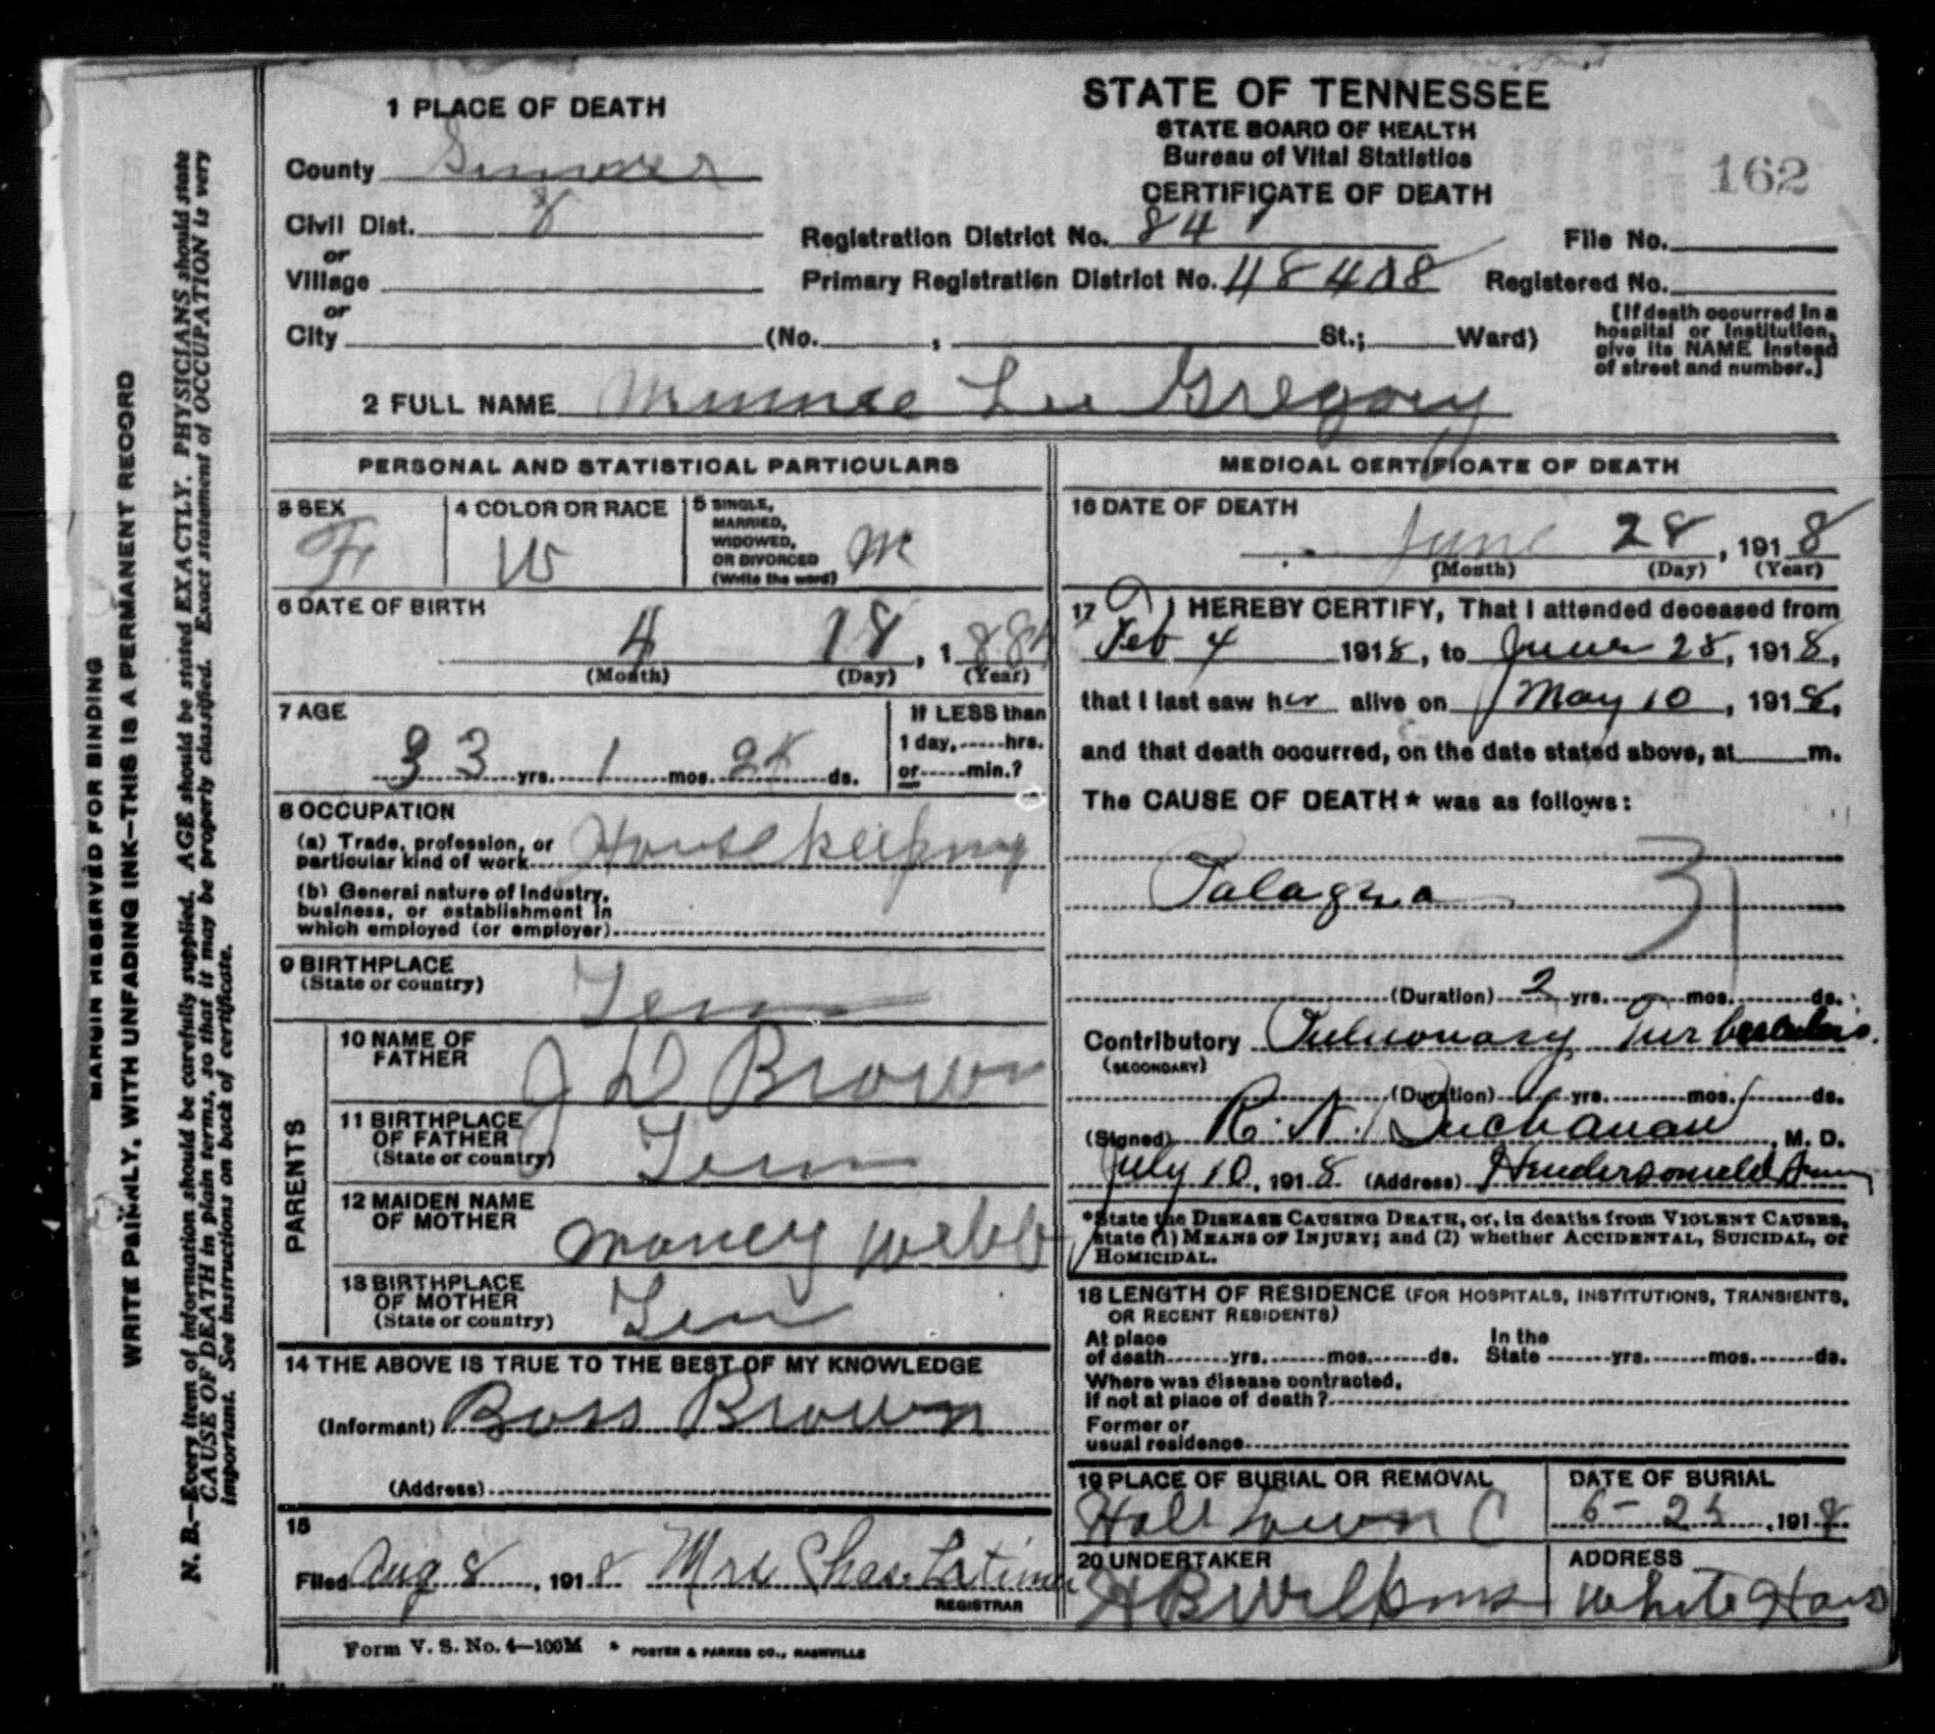 1 PLACE OF DEATH
STATE OF TENNESSEE
STATE BOARD OF HEALTH
Bureau of Vital Statistics
CERTIFICATE OF DEATH
162
County Sumner
Civil Dist. 8
or
Village
or
City (No. , St.; Ward)
Registration District No. 84
File No.
Primary Registration District No. 48408
Registered No.
[If death occurred in a
hospital or institution,
give its NAME instead
of street and number.]
2 FULL NAME Minnie Lee Gregory
PERSONAL AND STATISTICAL PARTICULARS
3 SEX
F
4 COLOR OR RACE
W
5 SINGLE,
MARRIED,
WIDOWED,
OR DIVORCED
(Write the word)
M
6 DATE OF BIRTH
4 18, 1884
(Month) (Day) (Year)
7 AGE
33 yrs. 1 mos. ds.
If LESS than
1 day, hrs.
or min.?
8 OCCUPATION
(a) Trade, profession, or
particular kind of work Housekeeping
(b) General nature of Industry,
business, or establishment in
which employed (or employer)
9 BIRTHPLACE
(State or country)
Tenn
PARENTS
10 NAME OF
FATHER
J D Brown
11 BIRTHPLACE
OF FATHER
(State or country)
Tenn
12 MAIDEN NAME
OF MOTHER
Webb
13 BIRTHPLACE
OF MOTHER
(State or country)
Tenn
14 THE ABOVE IS TRUE TO THE BEST OF MY KNOWLEDGE
(Informant) Boss Brown
(Address)
15
Filed Aug 8, 1918 Mrs Chas. Latimer
REGISTRAR
MEDICAL CERTIFICATE OF DEATH
16 DATE OF DEATH
June 28, 1918
(Month) (Day) (Year)
17 I HEREBY CERTIFY, That I attended deceased from
Feb 4 1918, to June 28, 1918,
that I last saw her alive on May 10, 1918,
and that death occurred, on the date stated above, at m.
The CAUSE OF DEATH* was as follows:
Palagra
31
(Duration) 2 yrs. mos. ds.
Contributory Pulmonary
(SECONDARY)
(Duration) yrs. mos. ds.
(Signed) R. N. Buchanan, M. D.
July 10, 1918 (Address) Hendersonville Tenn
*State the DISEASE CAUSING DEATH, or, in deaths from VIOLENT CAUSES,
state (1) MEANS OF INJURY; and (2) whether ACCIDENTAL, SUICIDAL, or
HOMICIDAL.
18 LENGTH OF RESIDENCE (FOR HOSPITALS, INSTITUTIONS, TRANSIENTS,
OR RECENT RESIDENTS)
At place
of death yrs. mos. ds.
In the
State yrs. mos. ds.
Where was disease contracted,
if not at place of death?
Former or
usual residence
19 PLACE OF BURIAL OR REMOVAL
Hall Town C
DATE OF BURIAL
6-, 1918
20 UNDERTAKER
ADDRESS
White House
Form V. S. No. 4—100M * FOSTER & PARKES CO., NASHVILLE
MARGIN RESERVED FOR BINDING
WRITE PLAINLY, WITH UNFADING INK—THIS IS A PERMANENT RECORD
N. B.—Every item of information should be carefully supplied. AGE should be stated EXACTLY. PHYSICIANS should state
CAUSE OF DEATH in plain terms, so that it may be properly classified. Exact statement of OCCUPATION is very
important. See instructions on back of certificate.